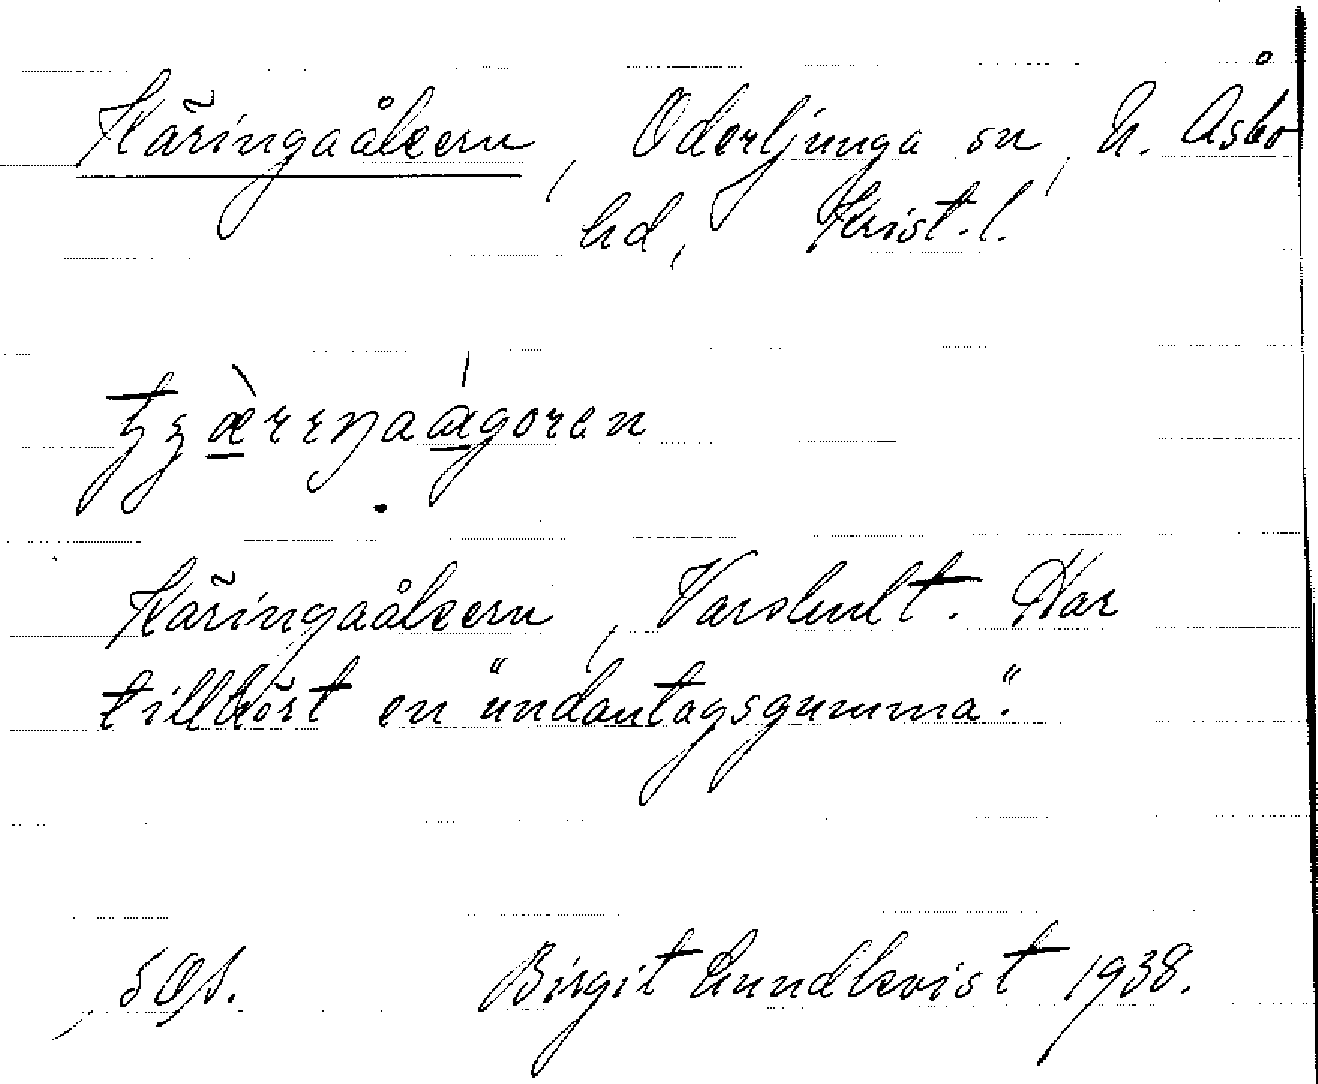 Käringaåkern, Oderljunga sn, N. Åsbo
hd, Kristl.
Käringaåkern, Varshult. Har
tillhört en "undantagsgumma".
Birgit Lundkvist 1938.